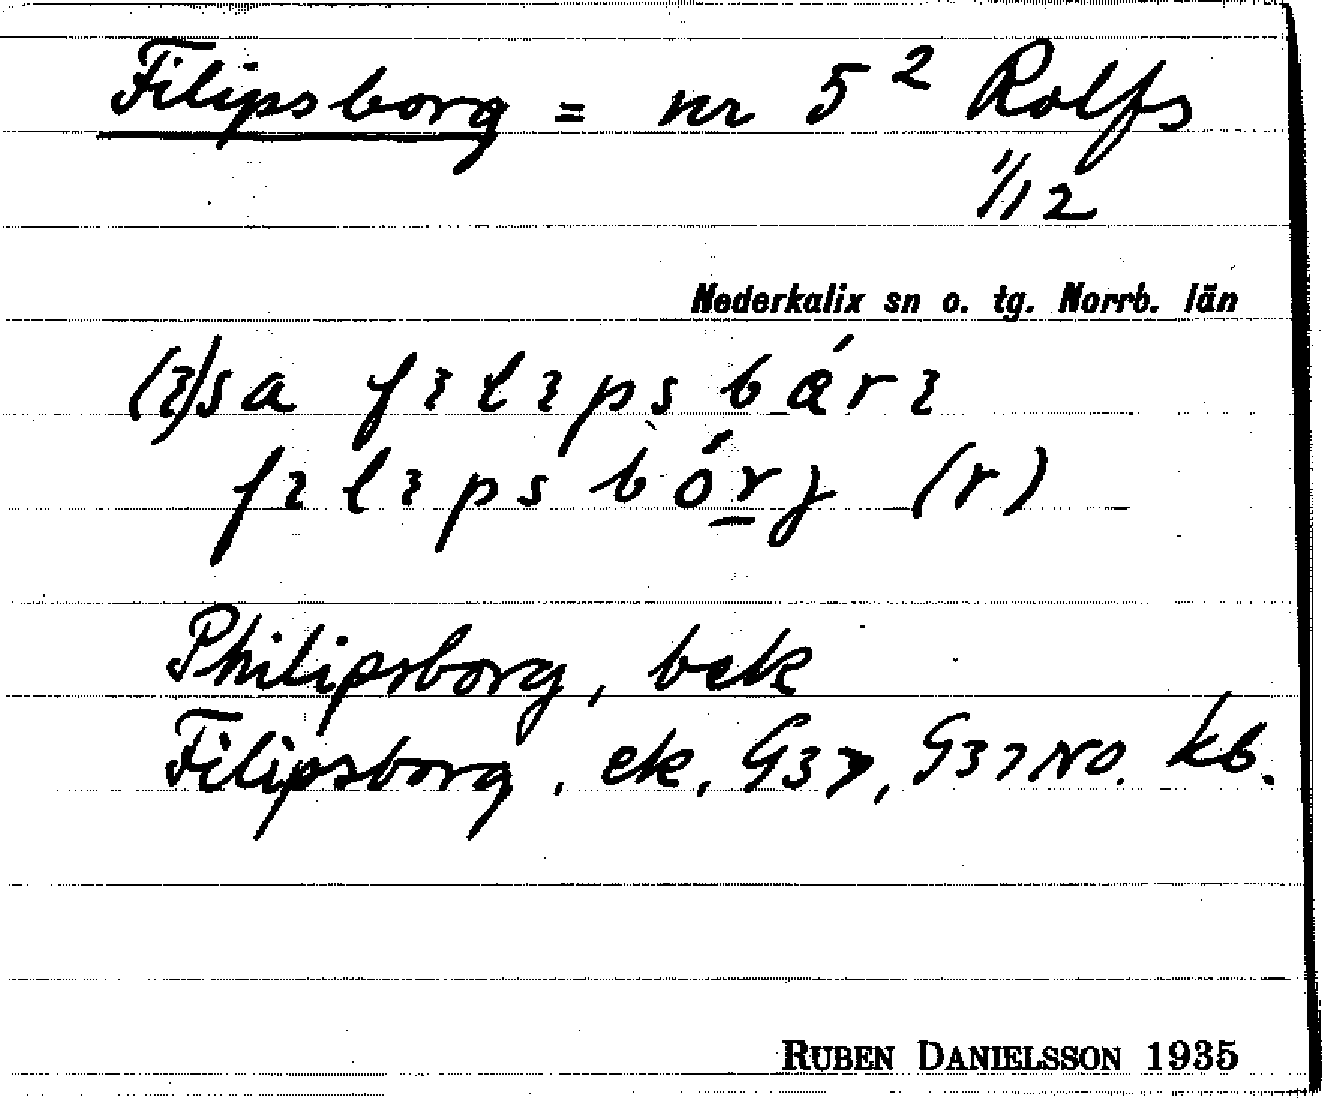 Filipsborg = nr 5² Rolfs
1/12
Nederkalix sn o. tg. Norrb. län
(ꝛ)sa fꝛlꝛps bárꝛ
fꝛlꝛps bór̲ȷ (r)
Philipsborg, bek
Filipsborg, ek, G37, G37NO. kb.
RUBEN DANIELSSON 1935